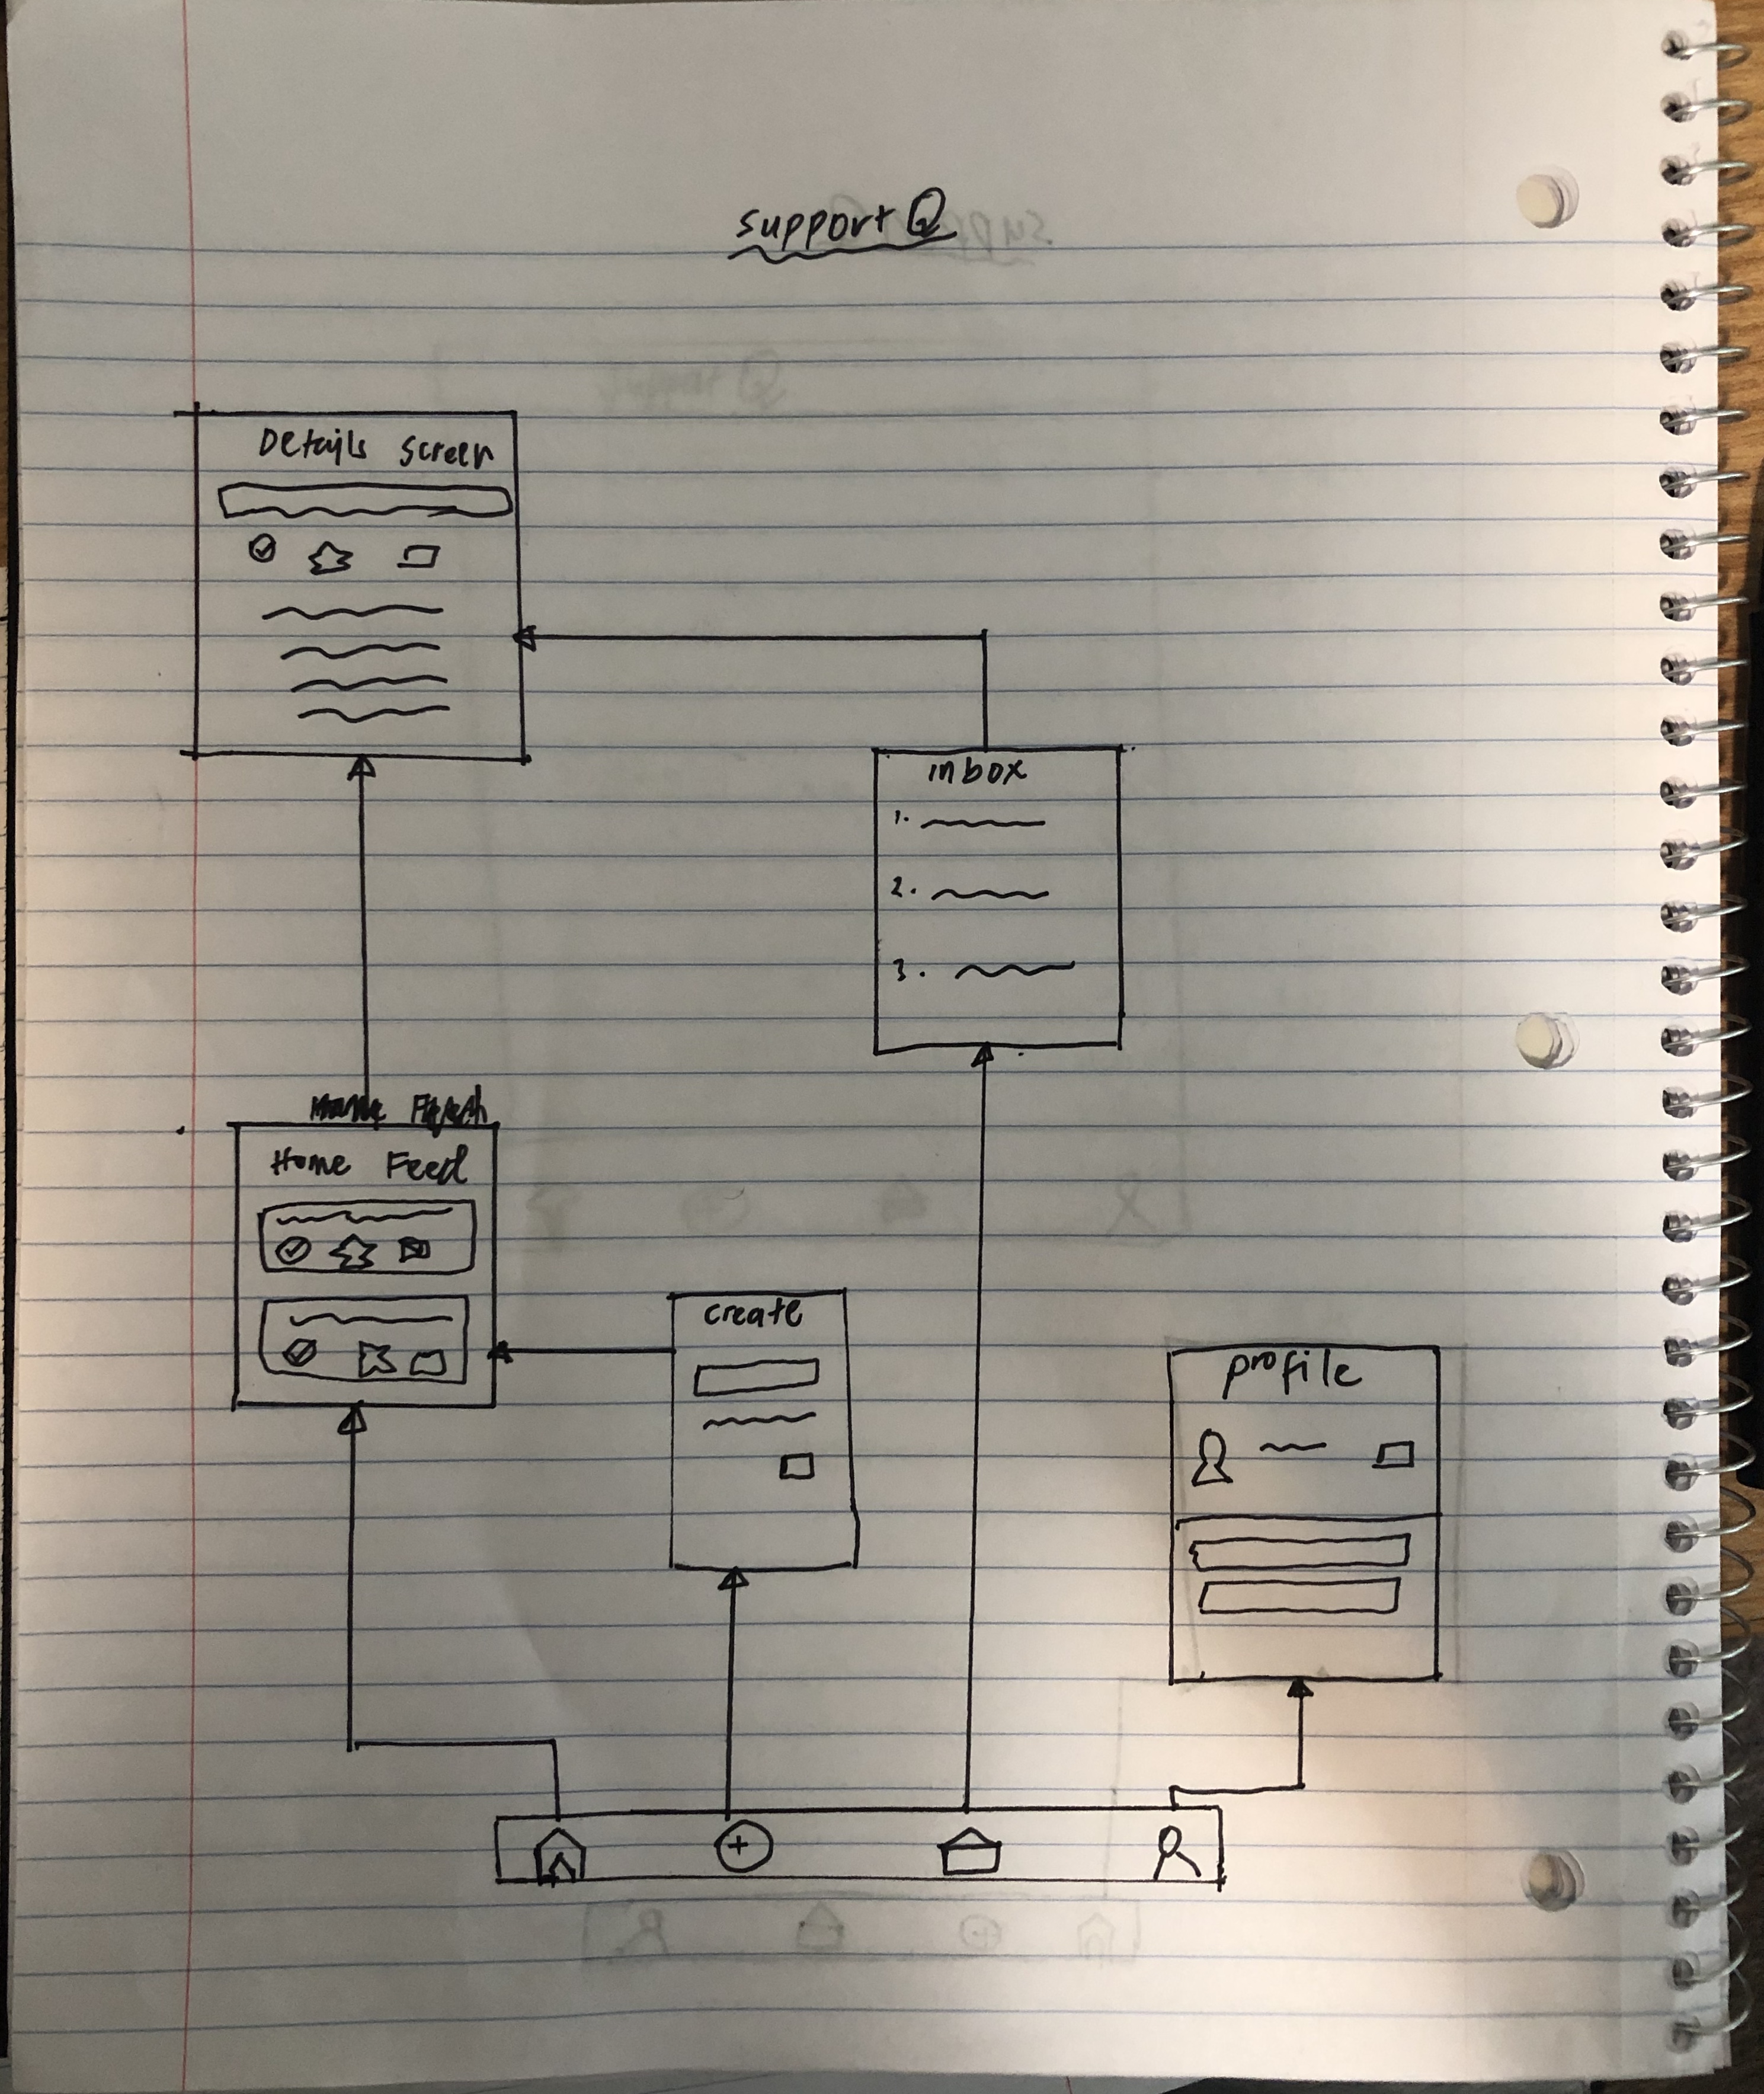 support Q
Details Screen
inbox
1.
2.
3.
Home Feed
create
profile